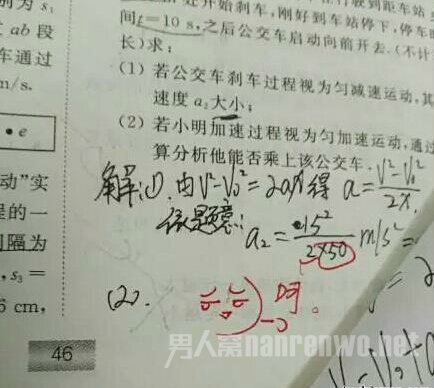 别为 s₁
ab 段
车通过
m/s.
• e
动”实
程的一
间隔为
, s₃ =
6 cm,
46
处开始刹车,刚好到车站停下,停车时
间t=10 s,之后公交车启动向前开去.(不计
长)求:
(1) 若公交车刹车过程视为匀减速运动,其
速度 a₂大小;
(2) 若小明加速过程视为匀加速运动,通过
算分析他能否乘上该公交车.
解:(1).由V²-V₀²=2ax得 a=(V²-V₀²)/2x.
依题意:
a₂=-15²/(2×50) m/s²=
(2).
啊。
男人窝nanrenwo.net